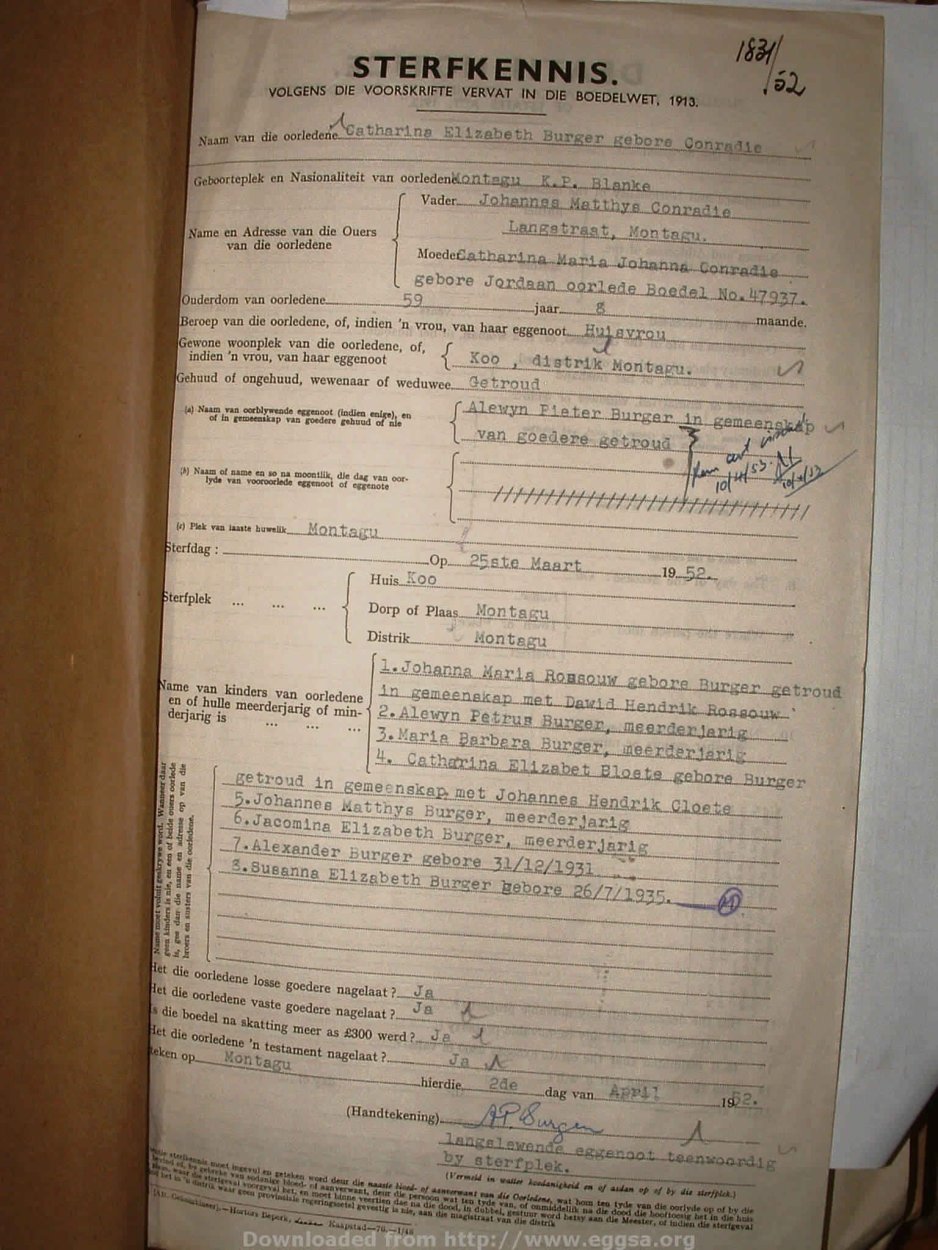 1831/52
STERFKENNIS.
VOLGENS DIE VOORSKRIFTE VERVAT IN DIE BOEDELWET, 1913.
Naam van die oorledene Catharina Elizabeth Burger gebore Conradie
Geboorteplek en Nasionaliteit van oorledene Montagu K.P. Blanke
Name en Adresse van die Ouers van die oorledene
Vader Johannes Matthys Conradie
Langstraat, Montagu.
Moeder Catharina Maria Johanna Conradie
gebore Jordaan oorlede Boedel No. 47937.
Ouderdom van oorledene 59 jaar 8 maande.
Beroep van die oorledene, of, indien 'n vrou, van haar eggenoot Huisvrou
Gewone woonplek van die oorledene, of, indien 'n vrou, van haar eggenoot
Koo , distrik Montagu.
Gehuud of ongehuud, wewenaar of weduwee Getroud
(a) Naam van oorblywende eggenoot (indien enige), en of in gemeenskap van goedere gehuud of nie
Alewyn Pieter Burger in gemeenskap
van goedere getroud
10/4/53
(b) Naam of name en so na moontlik, die dag van oorlyde van vooroorlede eggenoot of eggenote
(c) Plek van laaste huwelik Montagu
Sterfdag :
Op 25ste Maart 1952.
Sterfplek ... ... ...
Huis Koo
Dorp of Plaas Montagu
Distrik Montagu
Name van kinders van oorledene en of hulle meerderjarig of minderjarig is ... ... ...
1. Johanna Maria Rossouw gebore Burger getroud
in gemeenskap met Dawid Hendrik Rossouw.
2. Alewyn Petrus Burger, meerderjarig
3. Maria Barbara Burger, meerderjarig
4. Catharina Elizabet Bloete gebore Burger
getroud in gemeenskap met Johannes Hendrik Cloete
5. Johannes Matthys Burger, meerderjarig
6. Jacomina Elizabeth Burger, meerderjarig
7. Alexander Burger gebore 31/12/1931
8. Susanna Elizabeth Burger gebore 26/7/1935.
Name moet voluit geskrywe word. Wanneer daar
geen kinders is nie, en een of beide ouers oorlede
is, gee dan die name en adresse op van die
broers en susters van die oorledene.
Het die oorledene losse goedere nagelaat ? Ja
Het die oorledene vaste goedere nagelaat ? Ja
Is die boedel na skatting meer as £300 werd ? Ja
Het die oorledene 'n testament nagelaat ? Ja
teken op Montagu
hierdie 2de dag van April 1952.
(Handtekening) AP. Burger
langslewende eggenoot teenwoordig
by sterfplek.
(Vermeld in watter hoedanigheid en of asdan op of by die sterfplek.)
Kaapstad—70.—1/48
Downloaded from http://www.eggsa.org